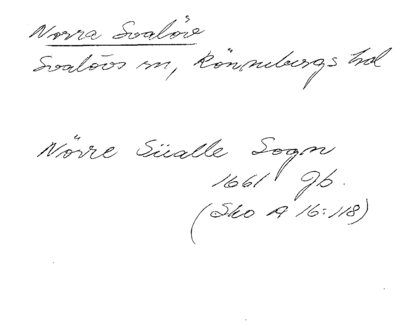 Norra Svalöv
Svalövs sn, Rönnebergs hd
Nörre Süalle Sogn
1661 Jb.
(Sko A 16:118)